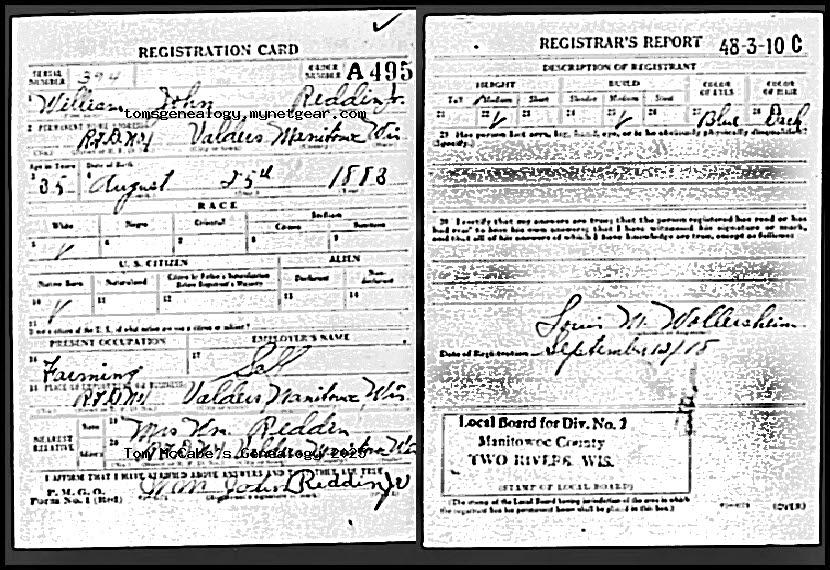 REGISTRATION CARD
SERIAL NUMBER 394
ORDER NUMBER A495
1 William John Reddin Jr.
tomsgenealogy.mynetgear.com
2 PERMANENT HOME ADDRESS
R.F.D. No 1 Valders Manitowoc Wis.
Age in Years Date of Birth
3 35 4 August 25th 1883
RACE
White Negro Oriental Indian
Citizen Noncitizen
5 ✓ 6 7 8 9
U. S. CITIZEN ALIEN
Native Born Naturalized Citizen by Father's Naturalization Before Registrant's Majority Declarant Non-declarant
10 ✓ 11 12 13 14
15
If not a citizen of the U. S., of what nation are you a citizen or subject?
PRESENT OCCUPATION EMPLOYER'S NAME
16 Farming 17 Self
18 PLACE OF EMPLOYMENT OR BUSINESS
R.F.D. No 1 Valders Manitowoc Wis.
NEAREST RELATIVE
Name 19 Mrs Wm. Reddin
Address 20 R.F.D. No 1 Valders Manitowoc Wis
Tom McCabe's Genealogy 2025
I AFFIRM THAT I HAVE VERIFIED ABOVE ANSWERS AND THAT THEY ARE TRUE
P. M. G. O.
Form No. 1 (Red)
Wm John Reddin Jr
REGISTRAR'S REPORT 48-3-10 C
DESCRIPTION OF REGISTRANT
HEIGHT BUILD COLOR OF EYES COLOR OF HAIR
Tall Medium Short Slender Medium Stout
21 22 ✓ 23 24 25 ✓ 26 27 Blue 28 Dark
29 Has person lost arm, leg, hand, eye, or is he obviously physically disqualified?
(Specify.)
30 I certify that my answers are true; that the person registered has read or has
had read to him his own answers; that I have witnessed his signature or mark,
and that all of his answers of which I have knowledge are true, except as follows:
Louis M. Wollersheim
Date of Registration September 12/18
Local Board for Div. No. 2
Manitowoc County
TWO RIVERS, WIS.
(STAMP OF LOCAL BOARD)
(The stamp of the Local Board having jurisdiction of the area in which
the registrant has his permanent home shall be placed in this box.)
(OVER)